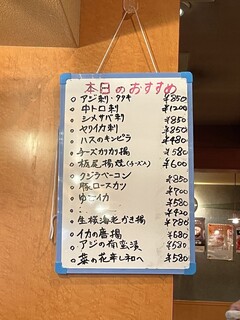 本日のおすすめ
アジ刺・タタキ ¥850
中トロ刺 ¥1200
シメサバ刺 ¥850
ヤリイカ刺 ¥850
ハスのキンピラ ¥480
チーズカリカリ揚 ¥580
栃尾揚焼(チーズ入) ¥600
クジラベーコン ¥850
豚ロースカツ ¥700
ゆでイカ ¥580
¥420
生桜海老かき揚 ¥780
イカの唐揚 ¥680
アジの南蛮漬 ¥530
菜の花辛し和へ ¥580